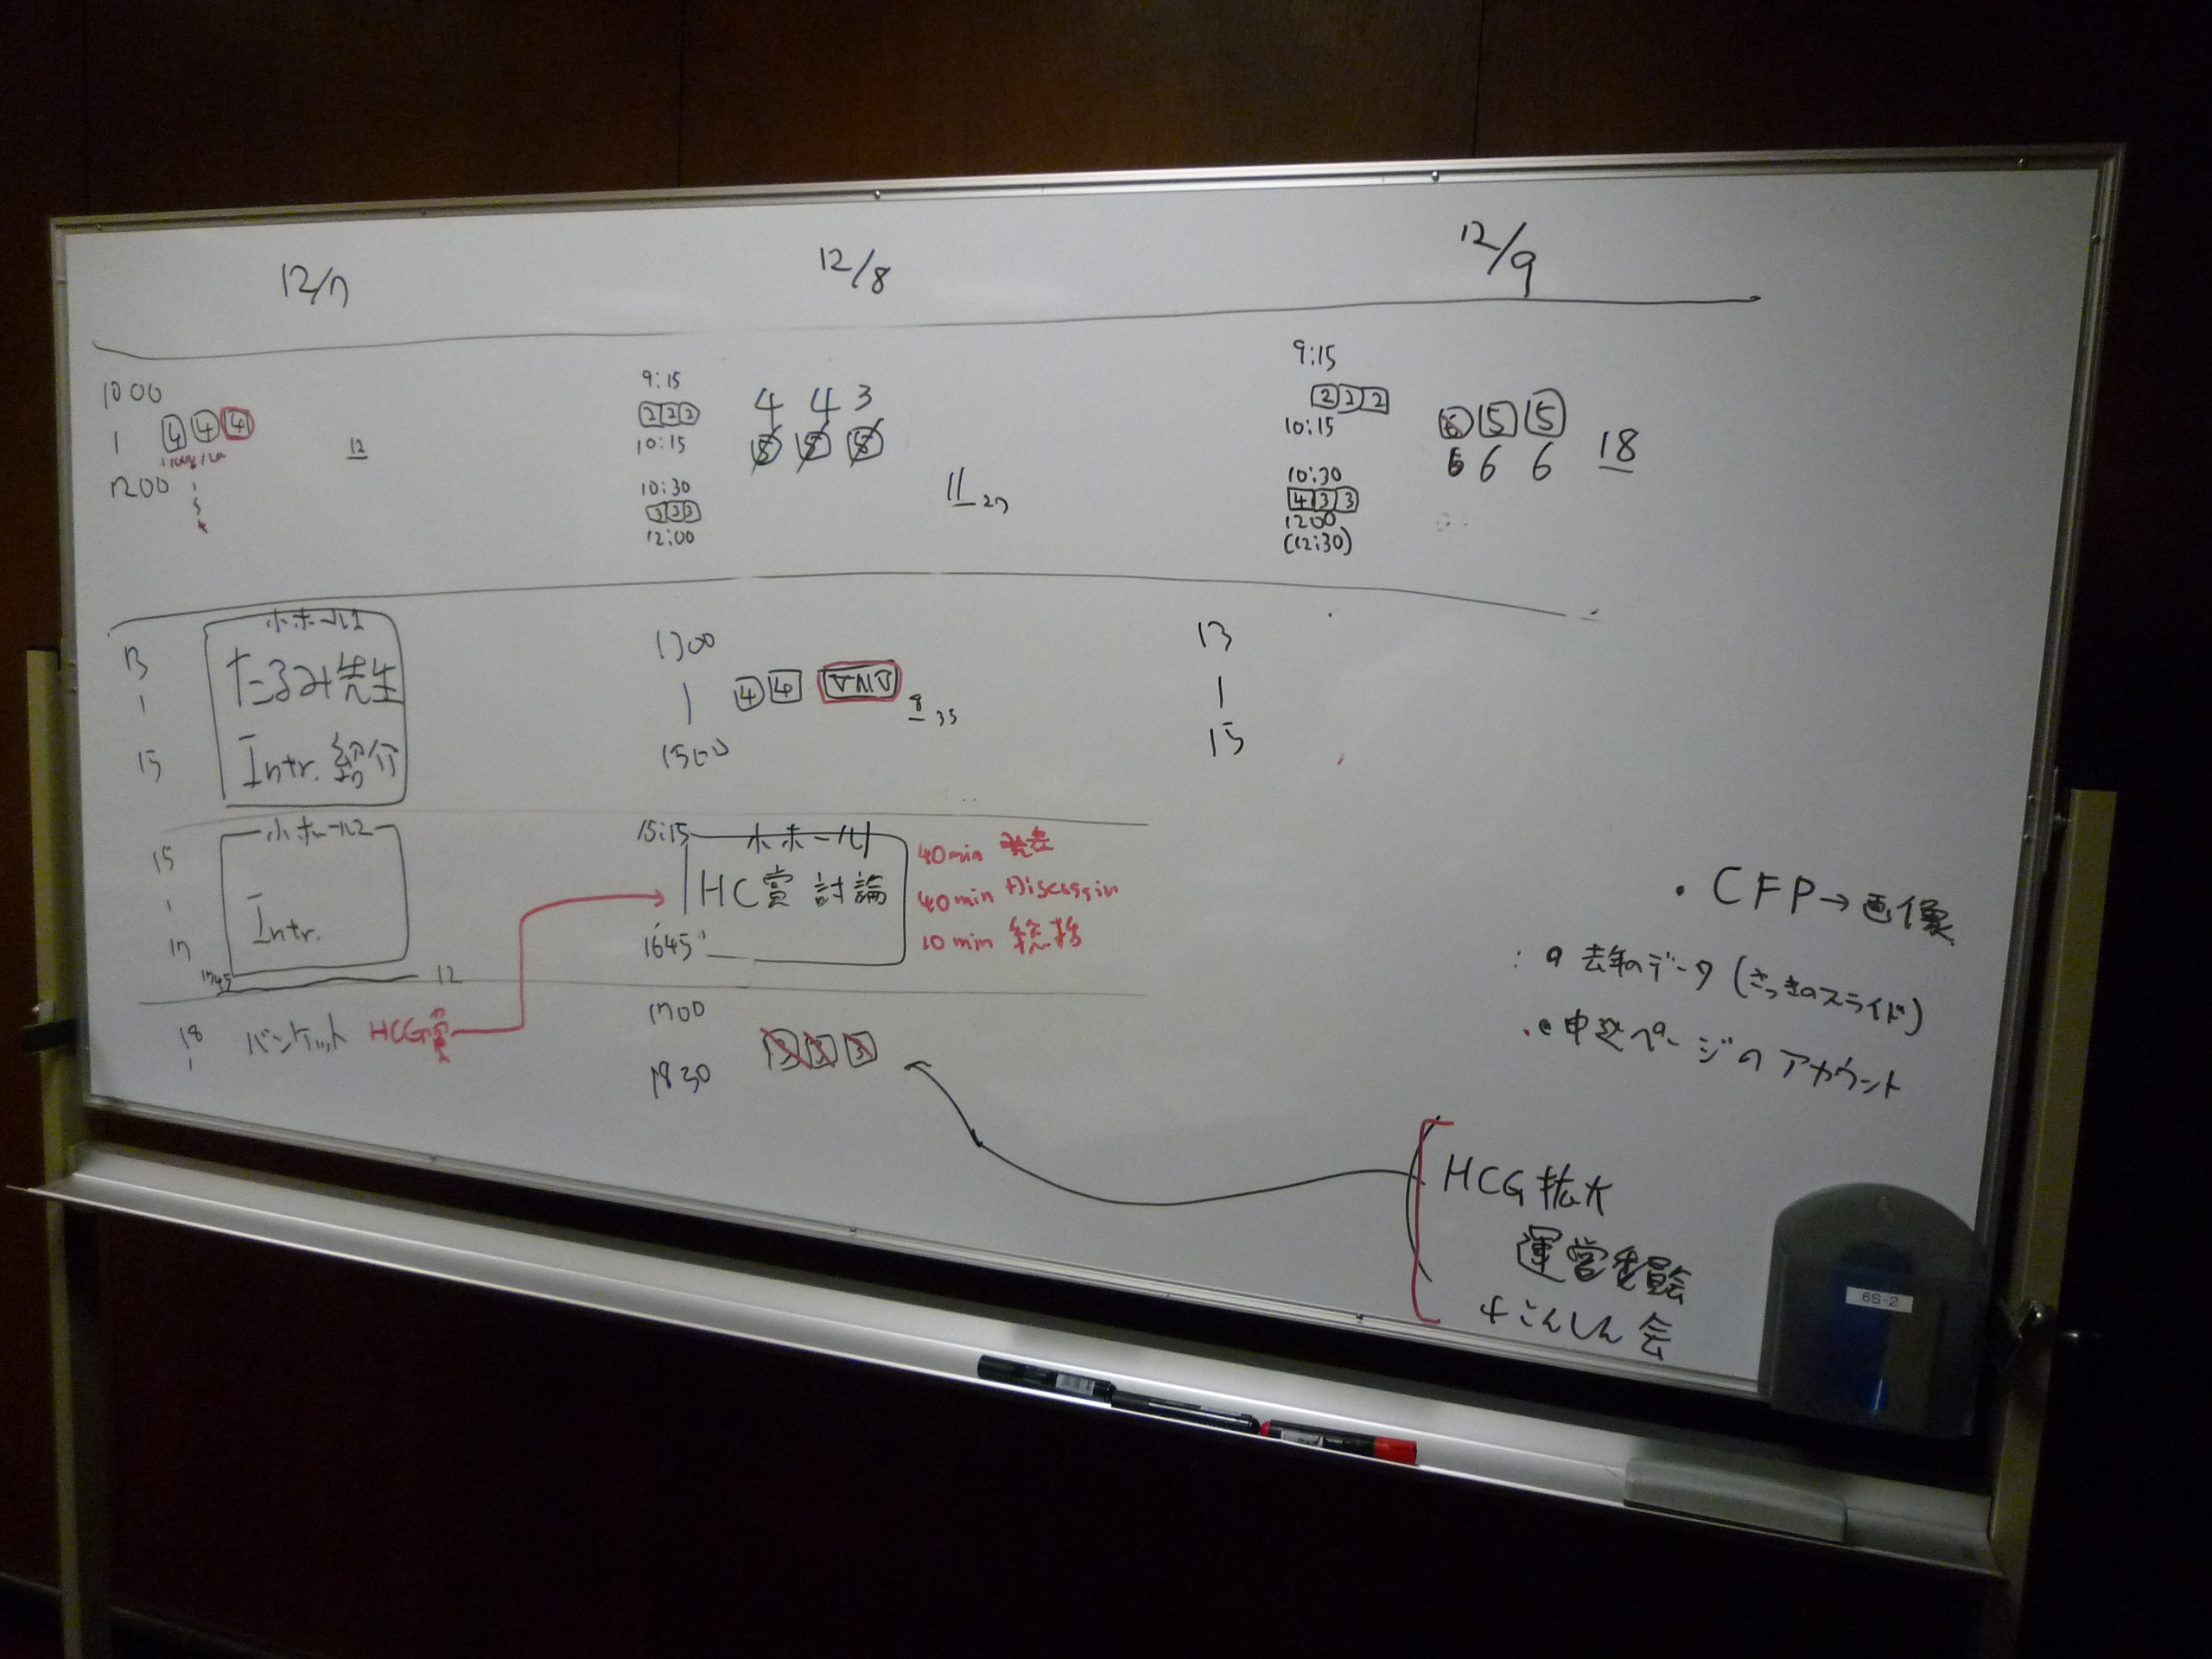 12/7
12/8
12/9
1000
4 4 4
12
1200
9:15
2 2 2
10:15
10:30
3 3 3
12:00
4 4 3
11 27
9:15
2 2 2
10:15
10:30
4 3 3
1200
(12:30)
5 5
6 6 6
18
13
15
小ホール1
たるみ先生
Intr. 紹介
1300
4 4
8 35
1500
13
15
15
17
小ホール2
Intr.
1745
12
15:15
小ホール1
HC賞 討論
1645
40min 発表
40min Discussin
10min 総括
18
バンケット HCG賞
1700
3 3 3
1830
・CFP→画像
去年のデータ (さっきのスライド)
申込ページのアカウント
HCG拡大
運営委員会
+こんしん会
6S-2